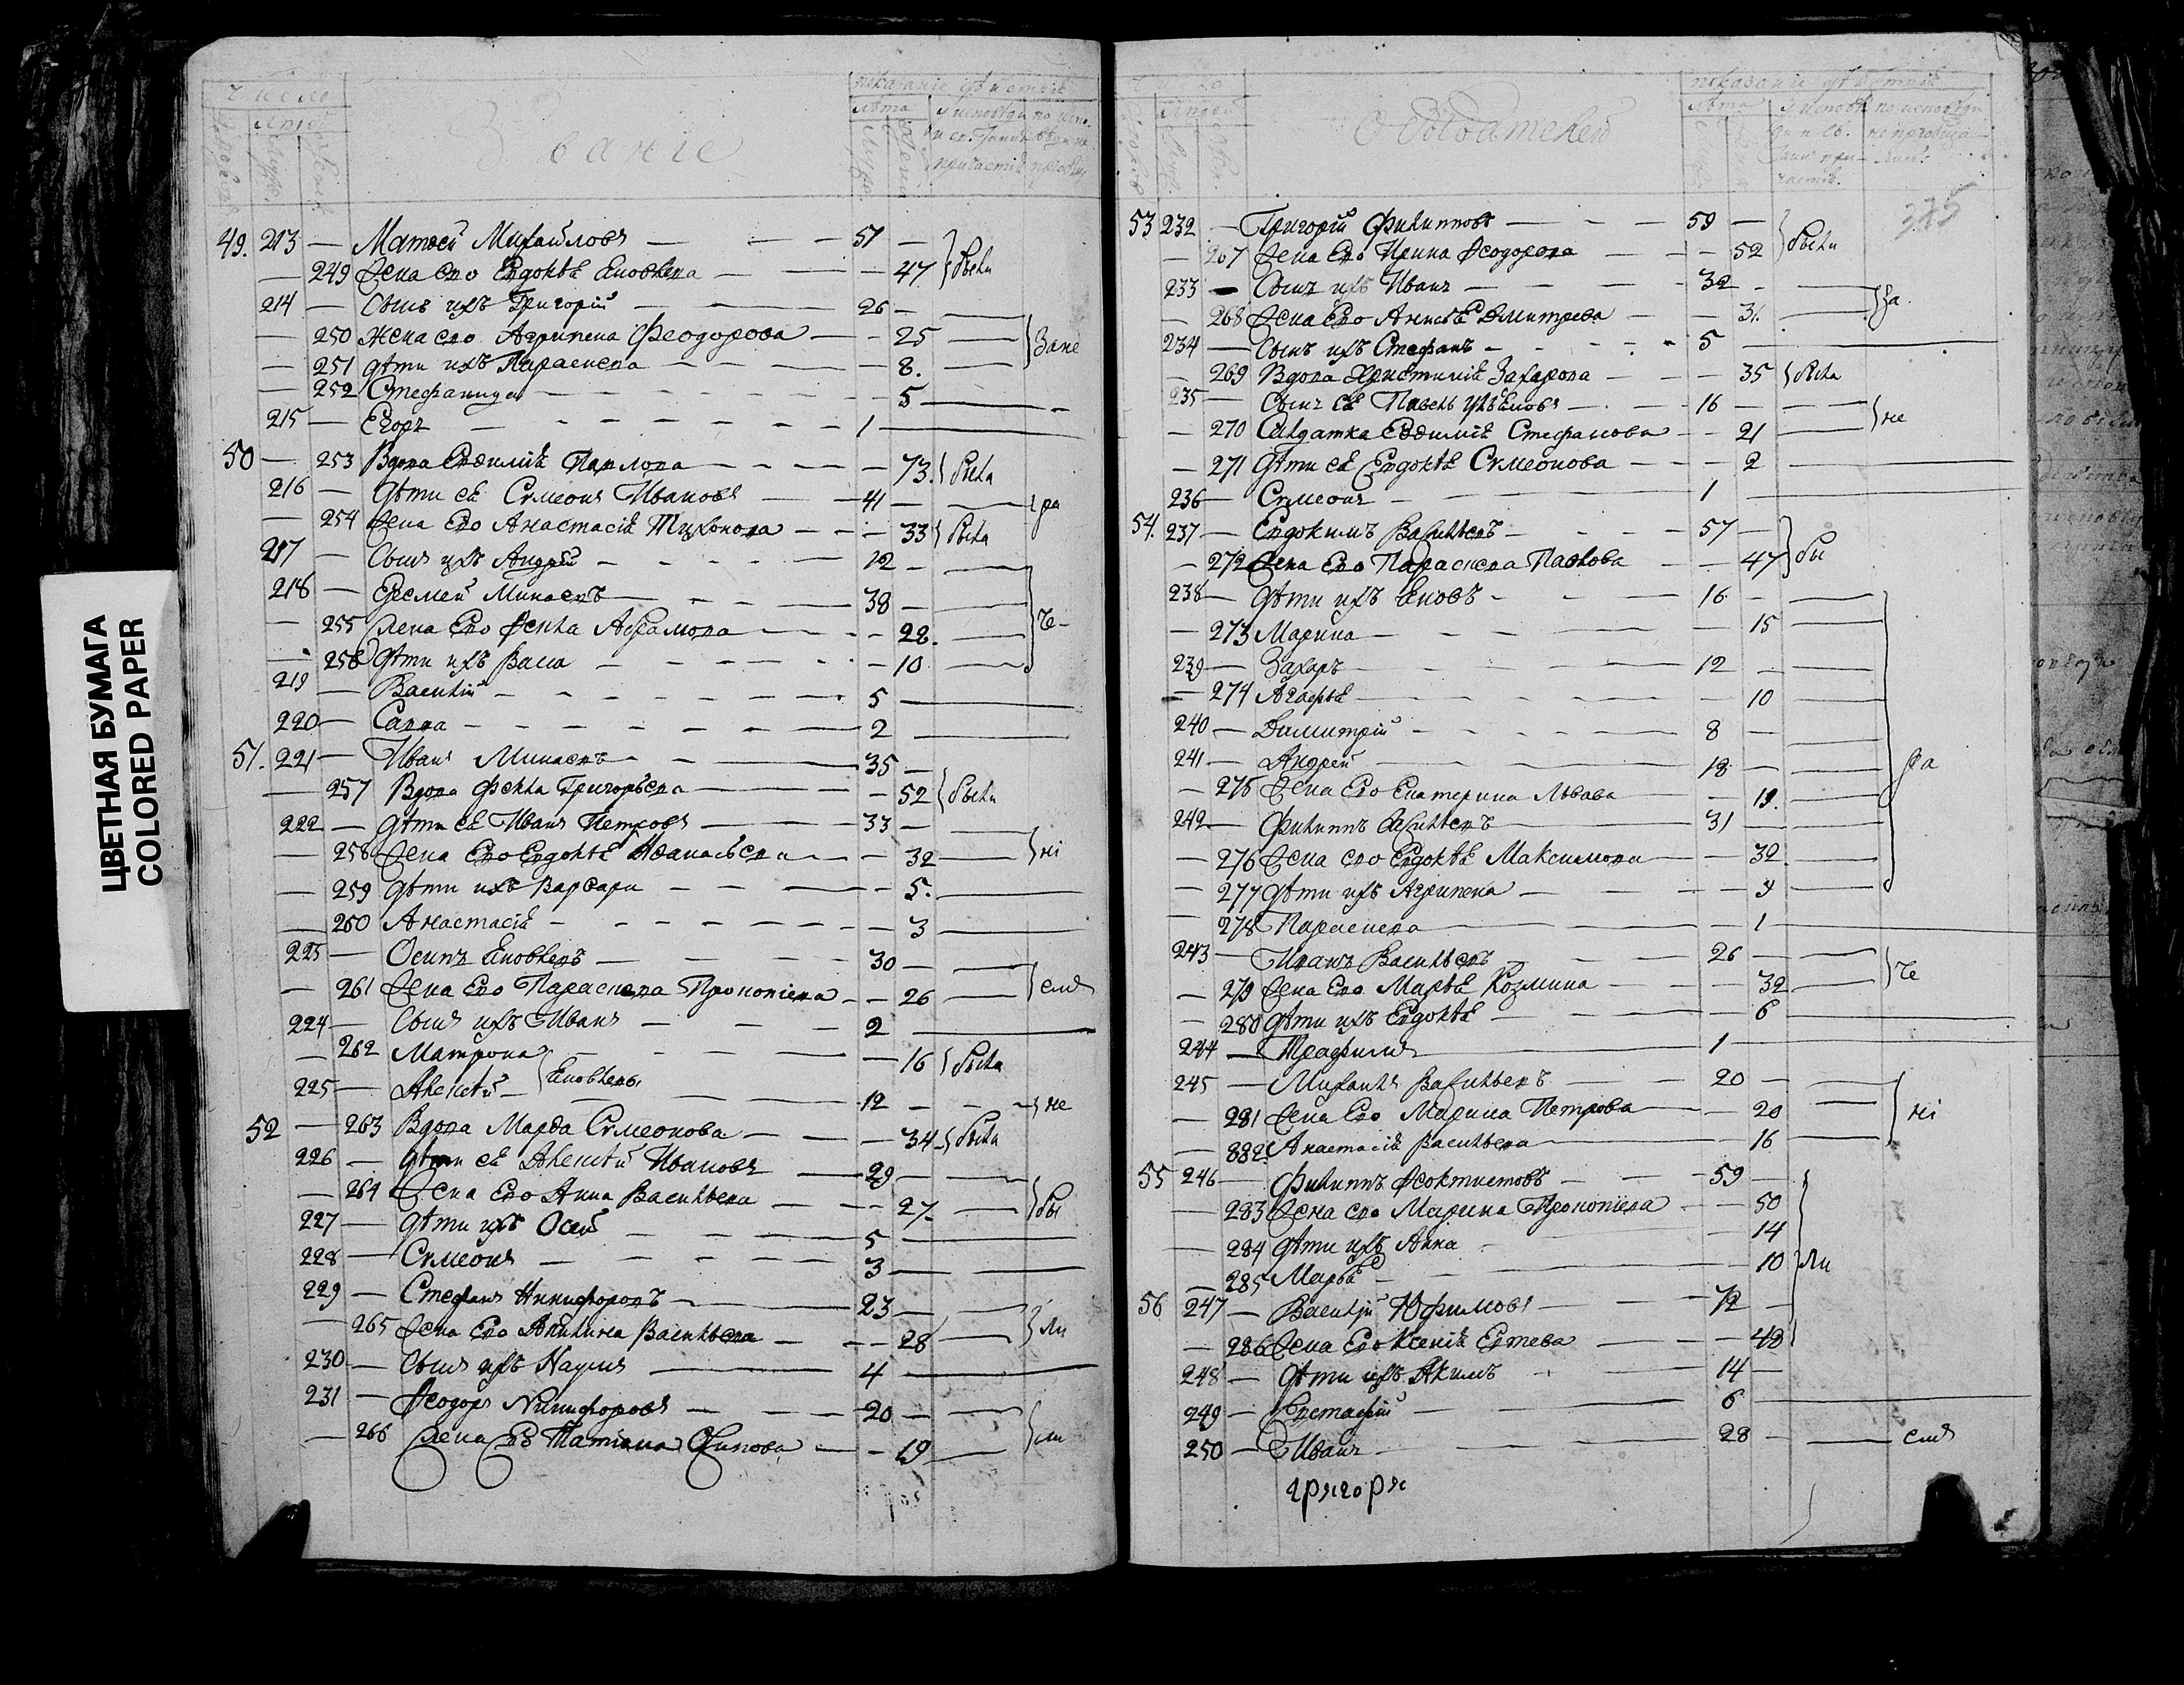 ЦВЕТНАЯ БУМАГА
COLORED PAPER
число
Званіе
показаніе
лѣта
49. 213 — Матвѣй Михайловъ — 51 — были
— 249 Жена его Евдокія Яковлева — 47
214 — Сынъ ихъ Григорій — 26 —
— 250 Жена его Агрипена Феодорова — 25 — Зане
— 251 дѣти ихъ Параскева — 8.
— 252 Стефанида — 5
215 — Егоръ — 1
50 — 253 Вдова Евѳимія Павлова — 73. была
216 — дѣти ея Симеонъ Ивановъ — 41 — ра
— 254 Жена его Анастасія Тихонова — 33 была
217 — Сынъ ихъ Андрей — 12 —
218 — Еремей Минаевъ — 38 —
— 255 Жена его Ѳекла Абрамова — 28. че-
— 256 дѣти ихъ Васса — 10
219 — Василій — 5
220 — Савва — 2
51. 221 — Иванъ Минаевъ — 35 —
— 257 Вдова Фекла Григорьева — 52 были
222 — дѣти ея Иванъ Петровъ — 33 —
— 258 Жена его Евдокія Аѳанасьева — 32 — ні
— 259 дѣти ихъ Варвара — 5.
— 260 Анастасія — 3
223 — Осипъ Яковлевъ — 30 —
— 261 Жена его Параскева Прокопіева — 26 — емъ
224 — Сынъ ихъ Иванъ — 2
— 262 Матрона — 16 была
225 — Алексѣй — Яковлевы — 12 — не
52 — 263 Вдова Марѳа Симеонова — 34 — была
226 — дѣти ея Алексѣй Ивановъ — 29 —
— 264 Жена его Анна Васильева — 27 — бы
227 — дѣти ихъ — 5
228 — Симеонъ — 3
229 — Стефанъ Никифоровъ — 23 —
— 265 Жена его Акилина Васильева — 28 — ли
230 — Сынъ ихъ Наумъ — 4
231 — Ѳеодоръ Никифоровъ — 20 —
— 266 Жена его Татіана Осипова — 19
число
Обывателей
показаніе
лѣта
325
53 232 — Григорій Филипповъ — 59 — были
— 267 Жена его Ирина Ѳеодорова — 52
233 — Сынъ ихъ Иванъ — 32 — За
— 268 Жена его Анисья Дмитрева — 31.
234 — Сынъ ихъ Стефанъ — 5
— 269 Вдова Христинія Захарова — 35 была
235 — Сынъ ея Павелъ — 16 — не
— 270 Салдатка Евѳимія Стефанова — 21
— 271 дѣти ея Евдокія Симеонова — 2
236 — Симеонъ — 1
54. 237 — Евдокимъ Васильевъ — 57 — бы
— 272 Жена его Параскева Павлова — 47
238 — дѣти ихъ Яковъ — 16
— 273 Марина — 15
239 — Захаръ — 12
— 274 Агафья — 10
240 — Димитрій — 8
241 — Андрей — 18 — ра
— 275 Жена его Екатерина Львова — 19.
242 — Филиппъ Васильевъ — 31
— 276 Жена его Евдокія Максимова — 32
— 277 дѣти ихъ Агрипена — 9
— 278 Параскева — 1
243 — Иванъ Васильевъ — 26 — че
— 279 Жена его Марья Козмина — 32
— 280 дѣти ихъ Евдокія — 6
244 — Трафимъ — 1
245 — Михаилъ Васильевъ — 20 —
— 281 Жена его Марина Петрова — 20 — ні
— 882 Анастасія Васильева — 16
55 246 — Филиппъ Ѳеоктистовъ — 59 —
— 283 Жена его Марина Прокопіева — 50
— 284 дѣти ихъ Анна — 14
— 285 Марья — 10 ли
56 247 — Василій Юфимовъ — 72 —
— 286 Жена его Ксенія — 48
248 — дѣти ихъ Акимъ — 14 —
249 — Евстафій — 6
250 — Иванъ — 28 — емъ
григори